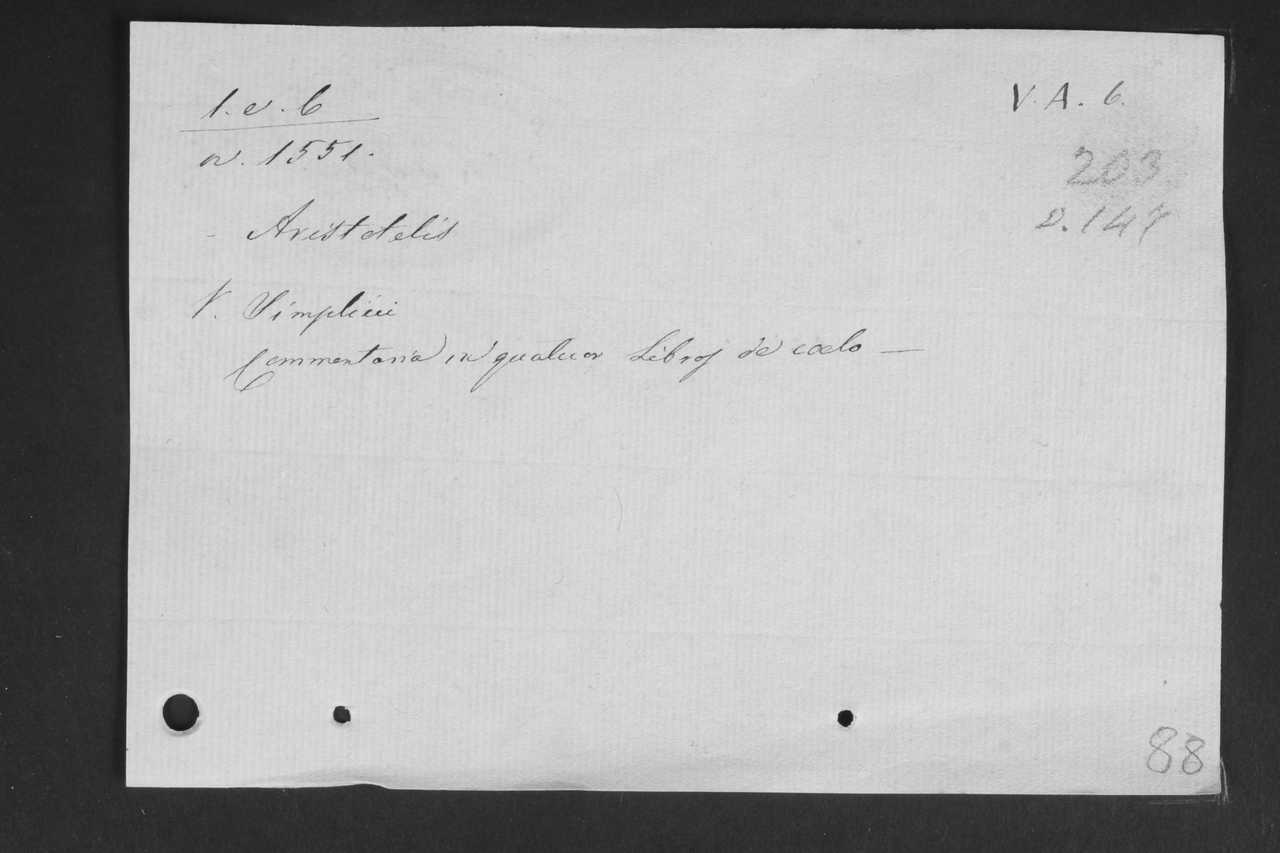 1. e. 6
V. A. 6.
n. 1551.
203
2. 147
- Aristotelis
V. Simplicii
Commentaria in quatuor Libros de coelo —
88